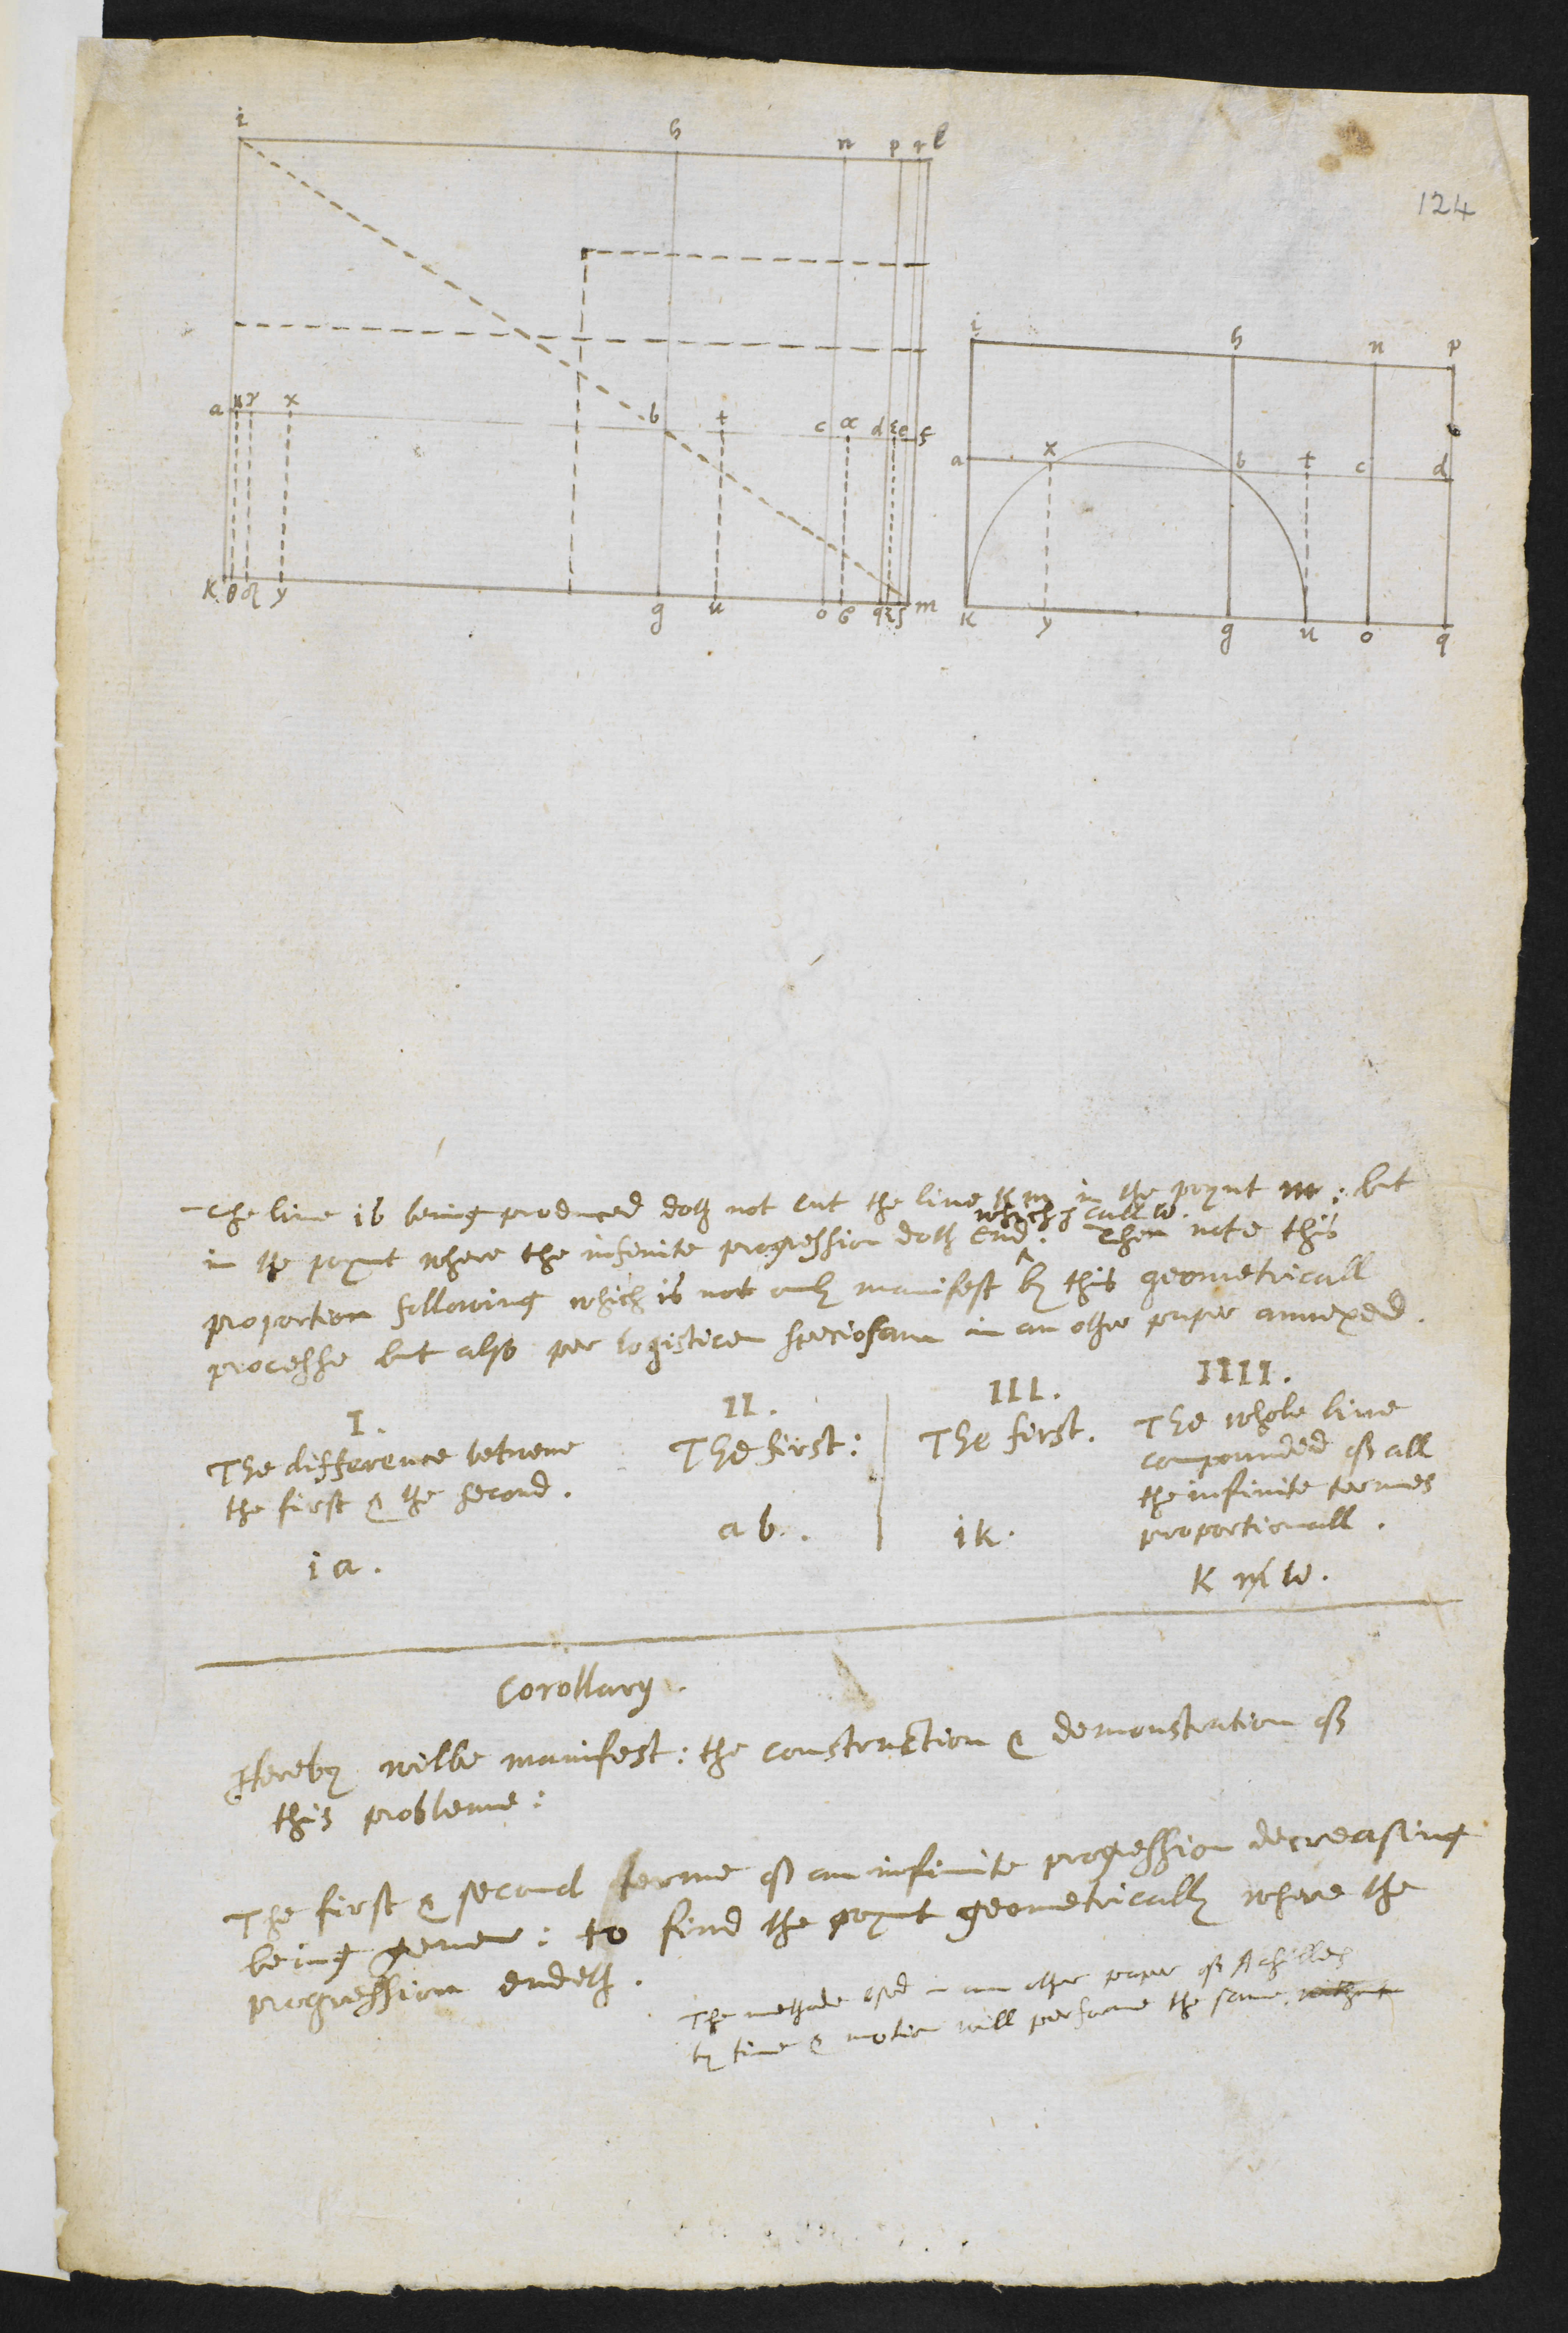 124
i h n p r l
a u γ x b t c α d ε e f
K θ δ y g u o β q z s m
i h n p
a x b t c d
K y g u o q
The line ib being produced doth not cut the line km in the poynt m: but
which I call w.
in the poynt where the infinite progression doth end. Then note this
proportion following which is not only manifest by this geometricall
processe but also per logisticen speciosam in an other paper annexed.
I. II. III. IIII.
The difference betwene The first: The first. The whole line
the first & the second. compounded of all
the infinite termes
i a. a b. i k. proportionall.
K m w.
Corollary.
Hereby wilbe manifest: the construction & demonstration of
this probleme:
The first & second terme of an infinite progression decreasing
being geven: to find the poynt geometrically where the
progression endeth.
The methode used in an other paper of Achilles
by time & motion will performe the same. without